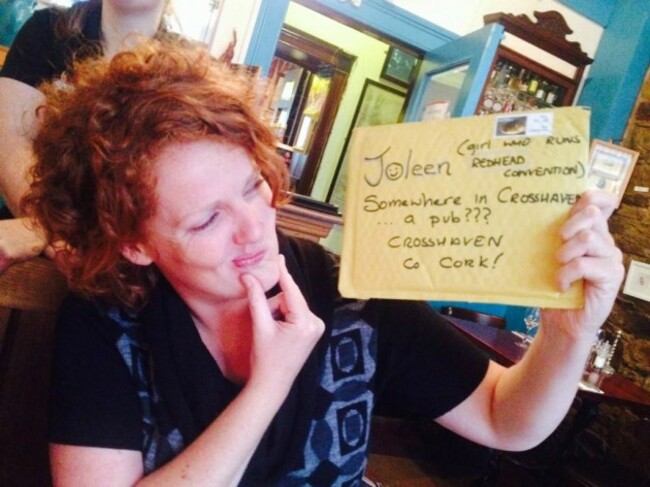 Joleen (girl WHO RUNS
REDHEAD
CONVENTION)
Somewhere in CROSSHAVEN
... a pub???
CROSSHAVEN
Co CORK!